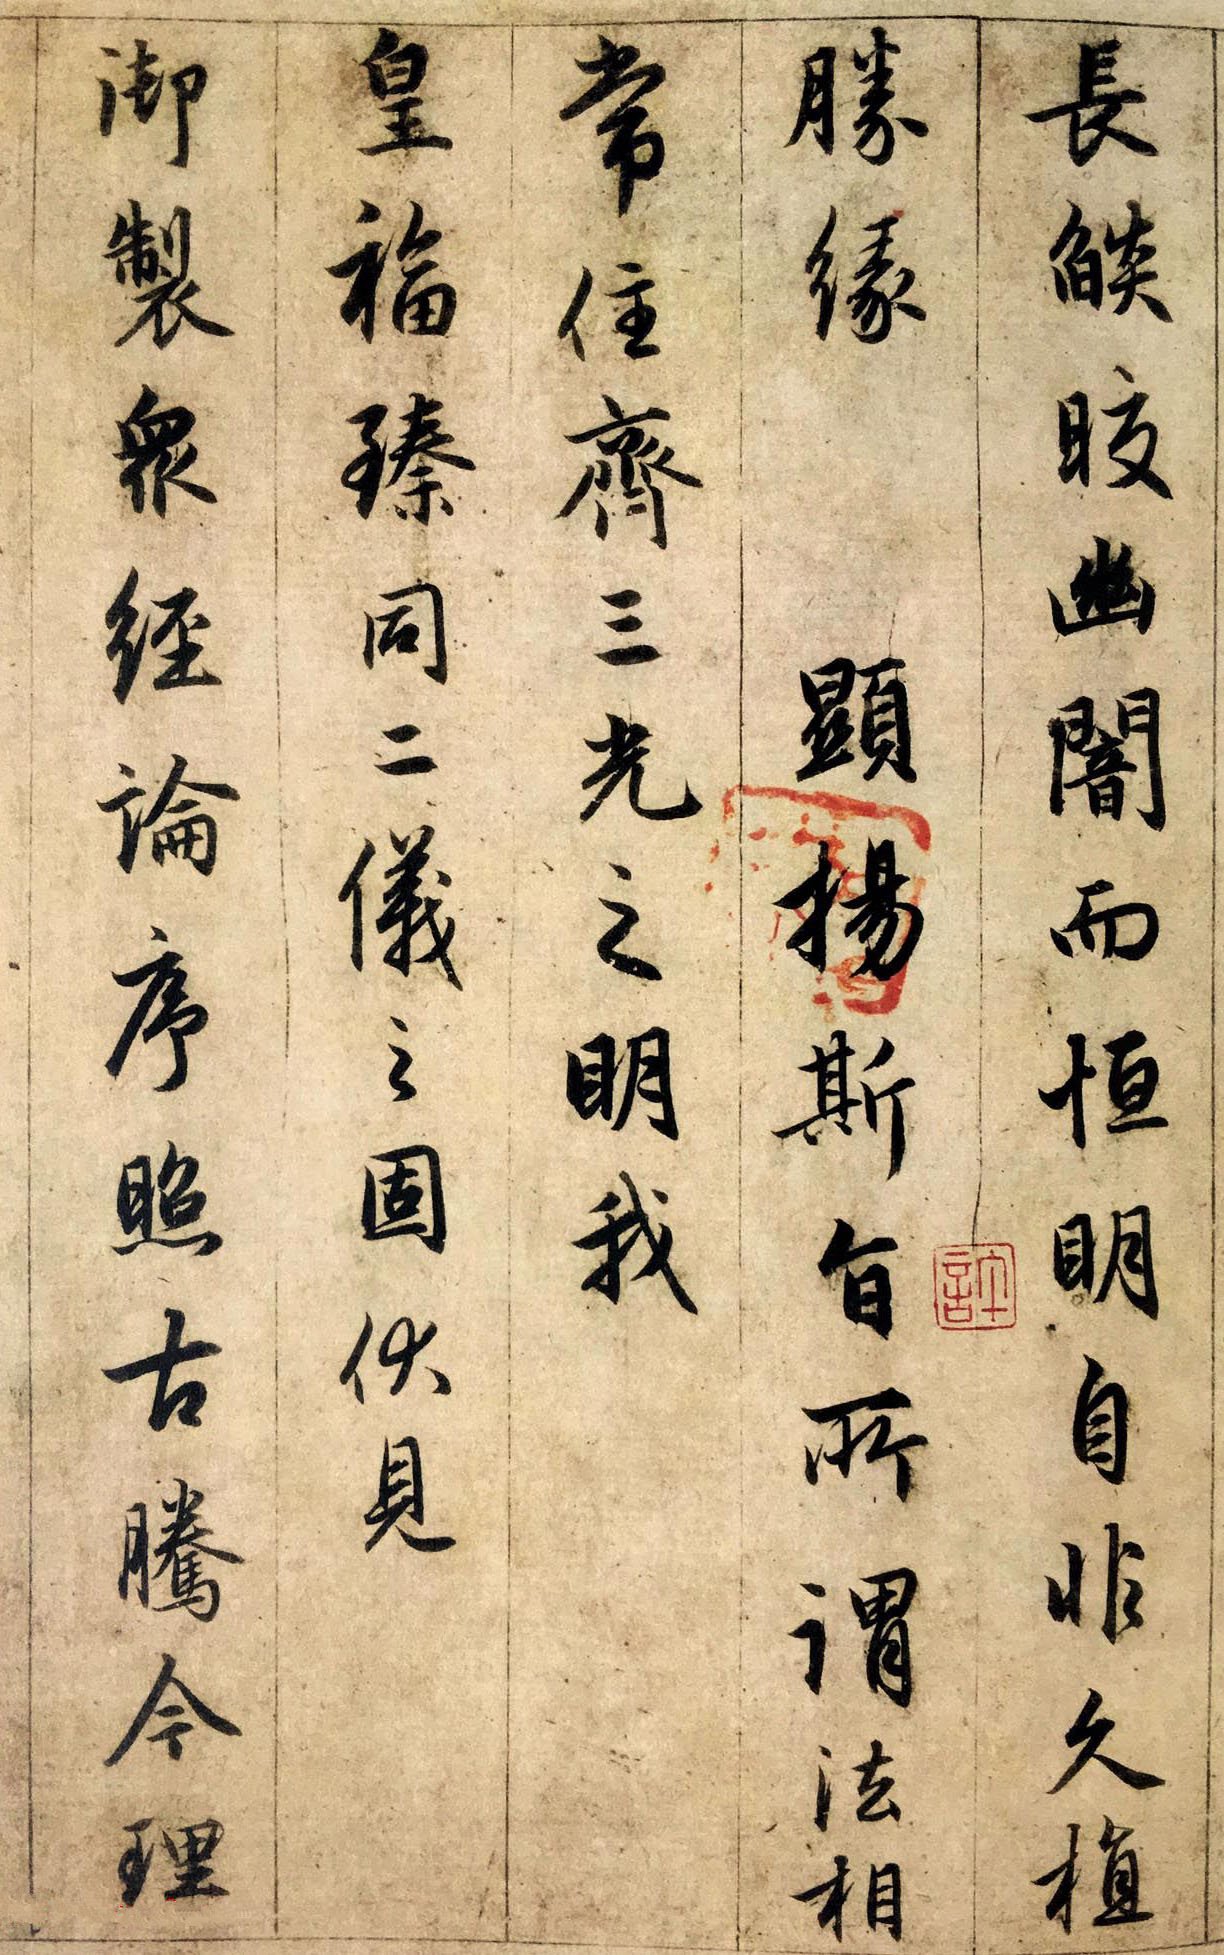 長燄晈幽闇而恒明自非久植
勝緣 顯揚斯旨所謂法相
常住齊三光之明我
皇福臻同二儀之固伏見
御製眾經論序照古騰今理
許